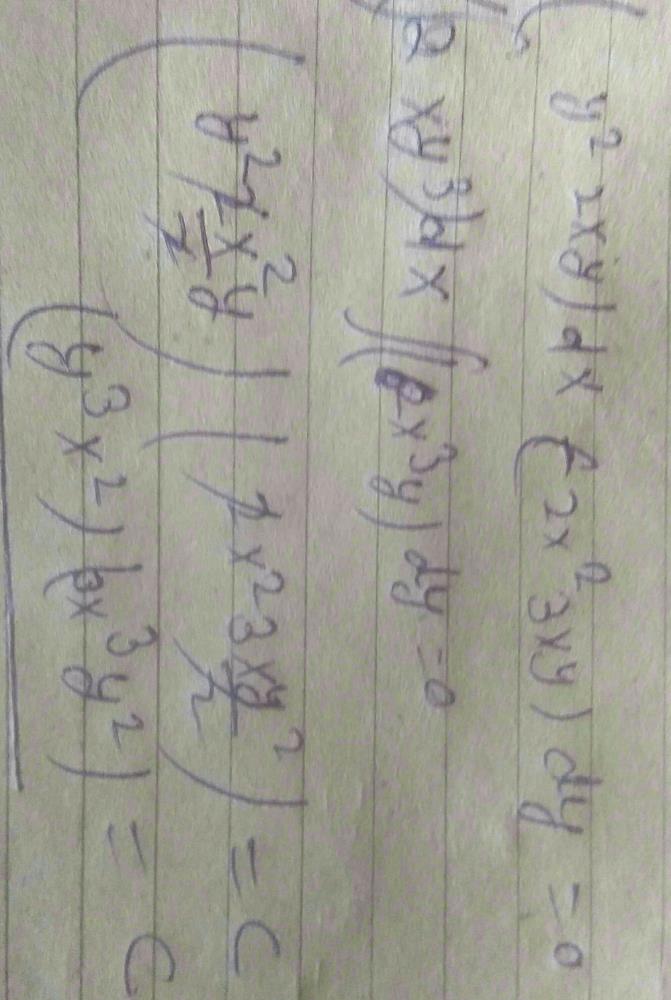 ( y² 2xy) dx (-2x² 3xy) dy = 0
2 xy³) dx )(2x³y) dy = 0
( y² 2x²y/2 ) ( 2x² 3xy²/2 ) = C
(y³x²) (6x³y²) = C